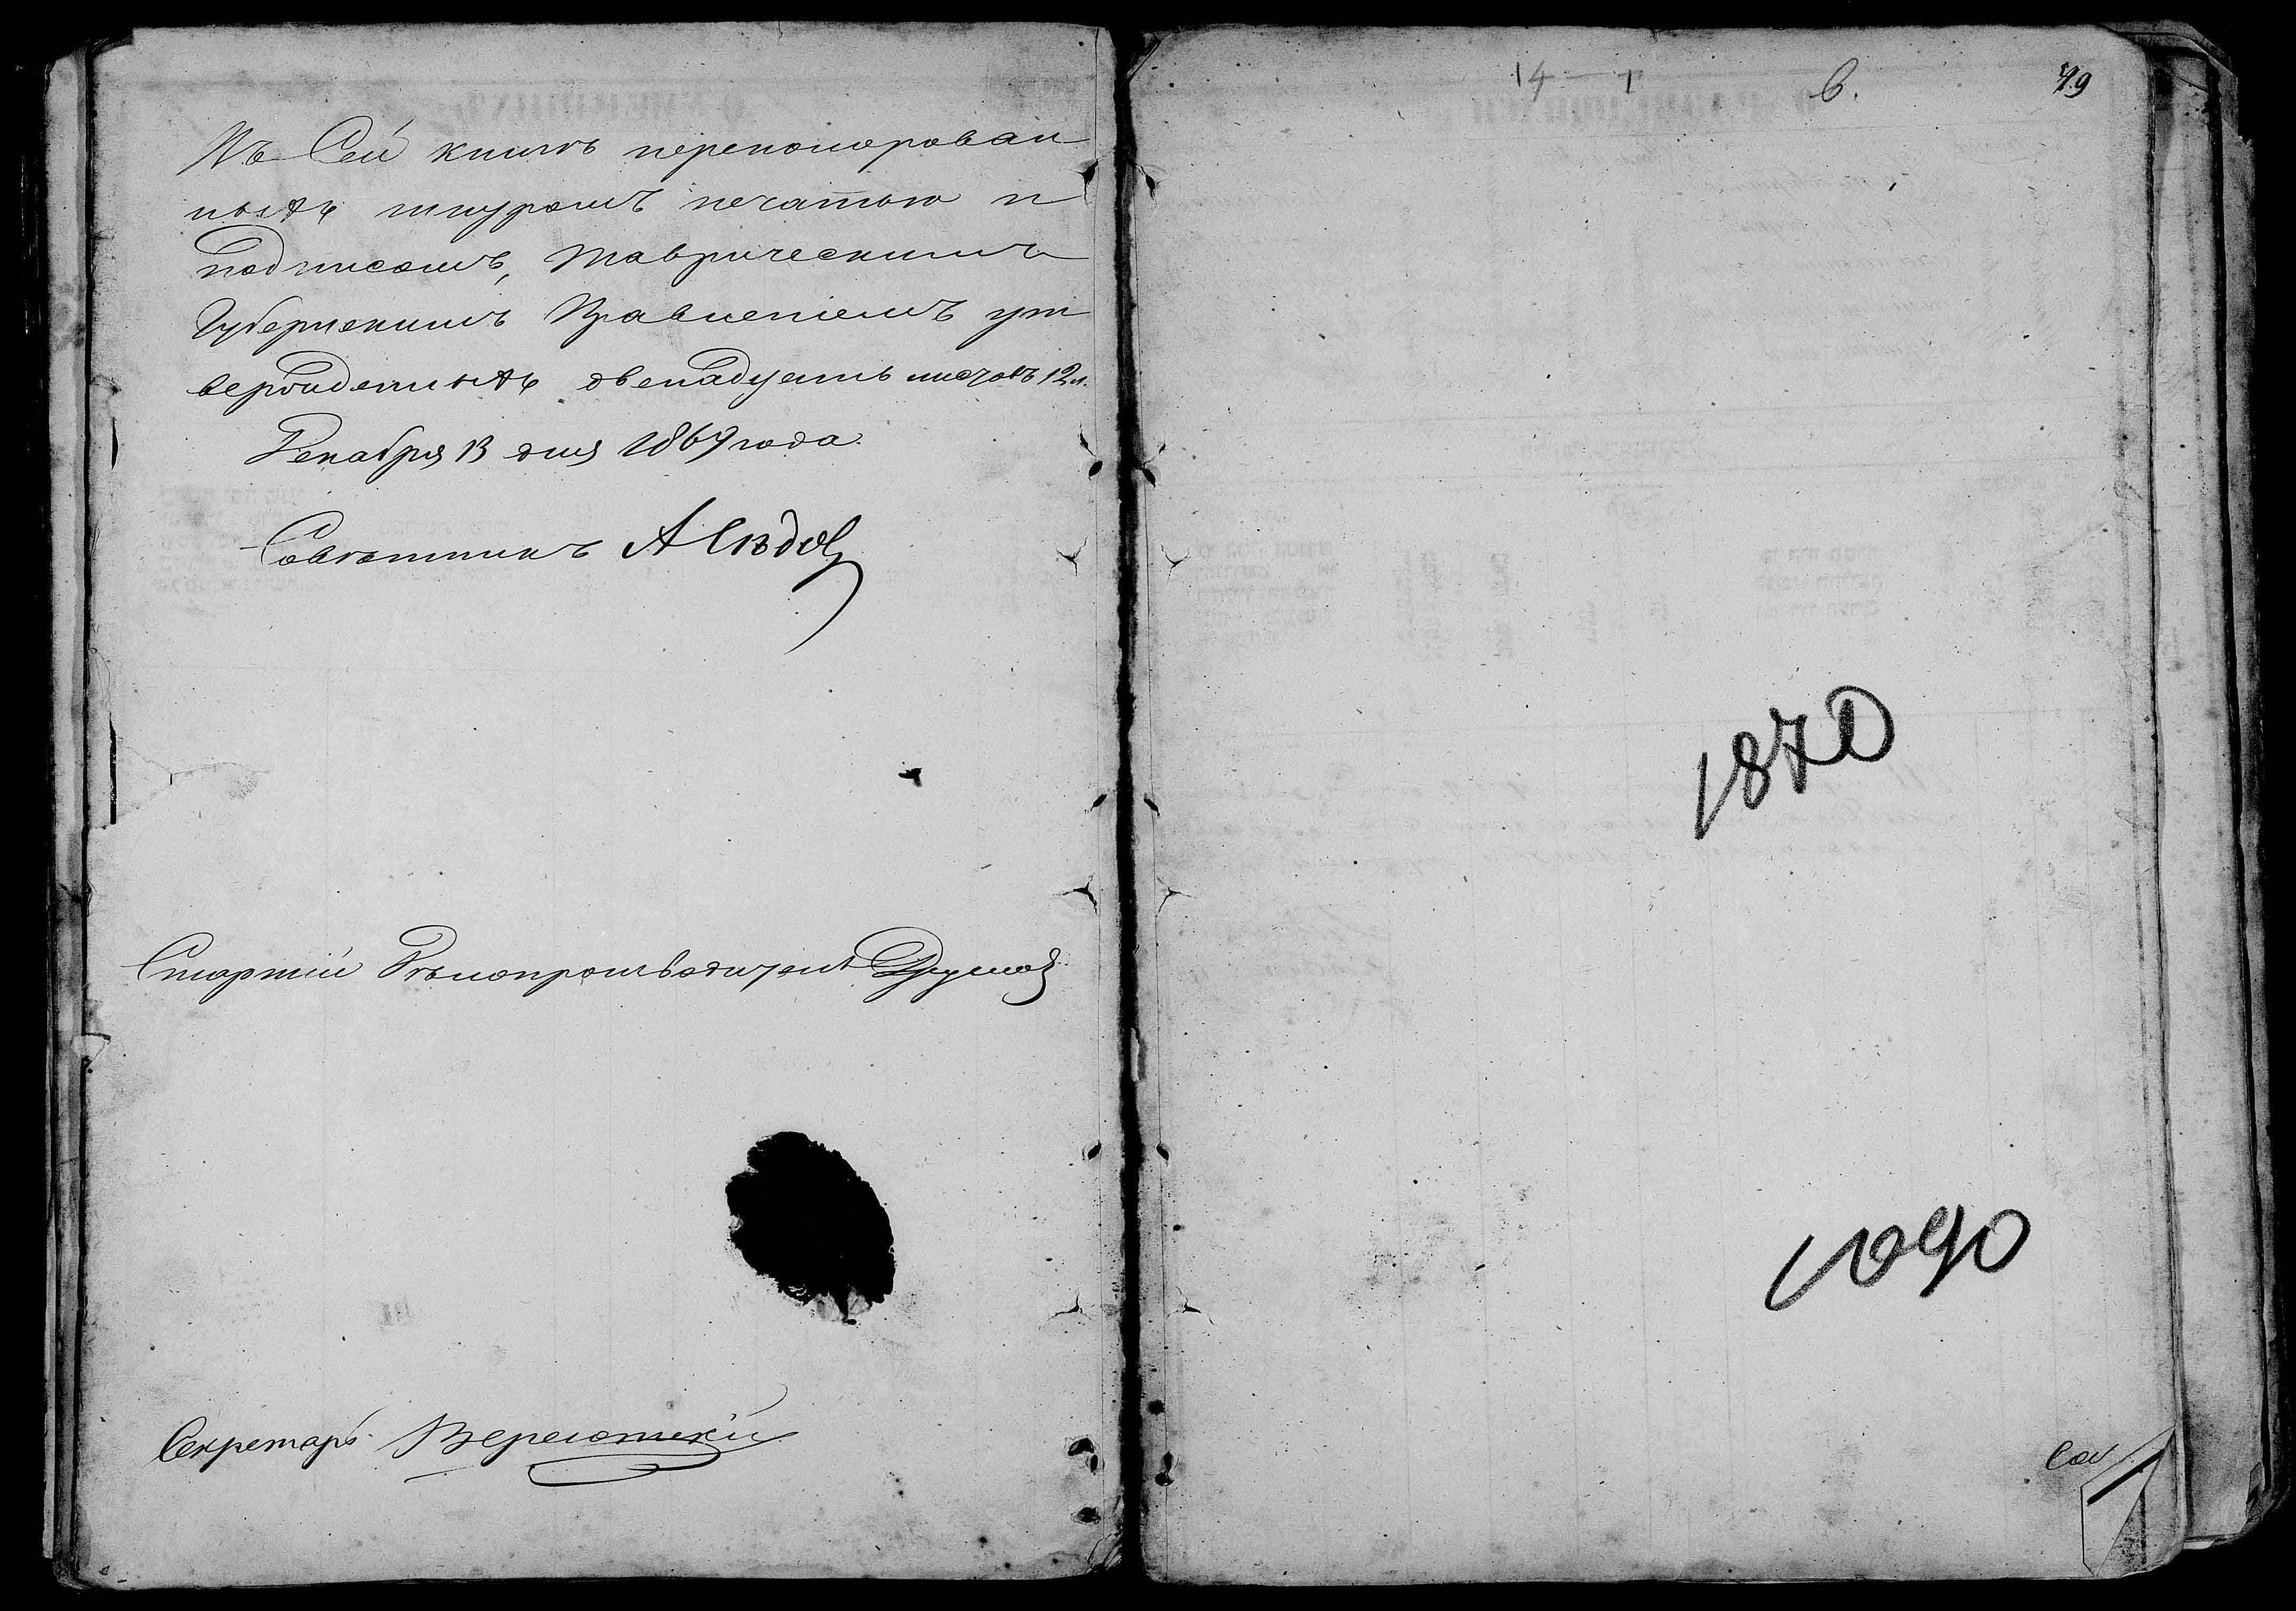 Въ Сей книгѣ перенумерован
ныхъ шнуромъ печатью и
подписомъ, Таврическимъ
Губернскимъ Правленіемъ ут
вержденныхъ двенадцать листовъ 12 л.
Декабря 13 дня 1869 года.
Совѣтникъ А
Старшій Дѣлопроизводитель
Секретарь
14
6.
49
1870
1090